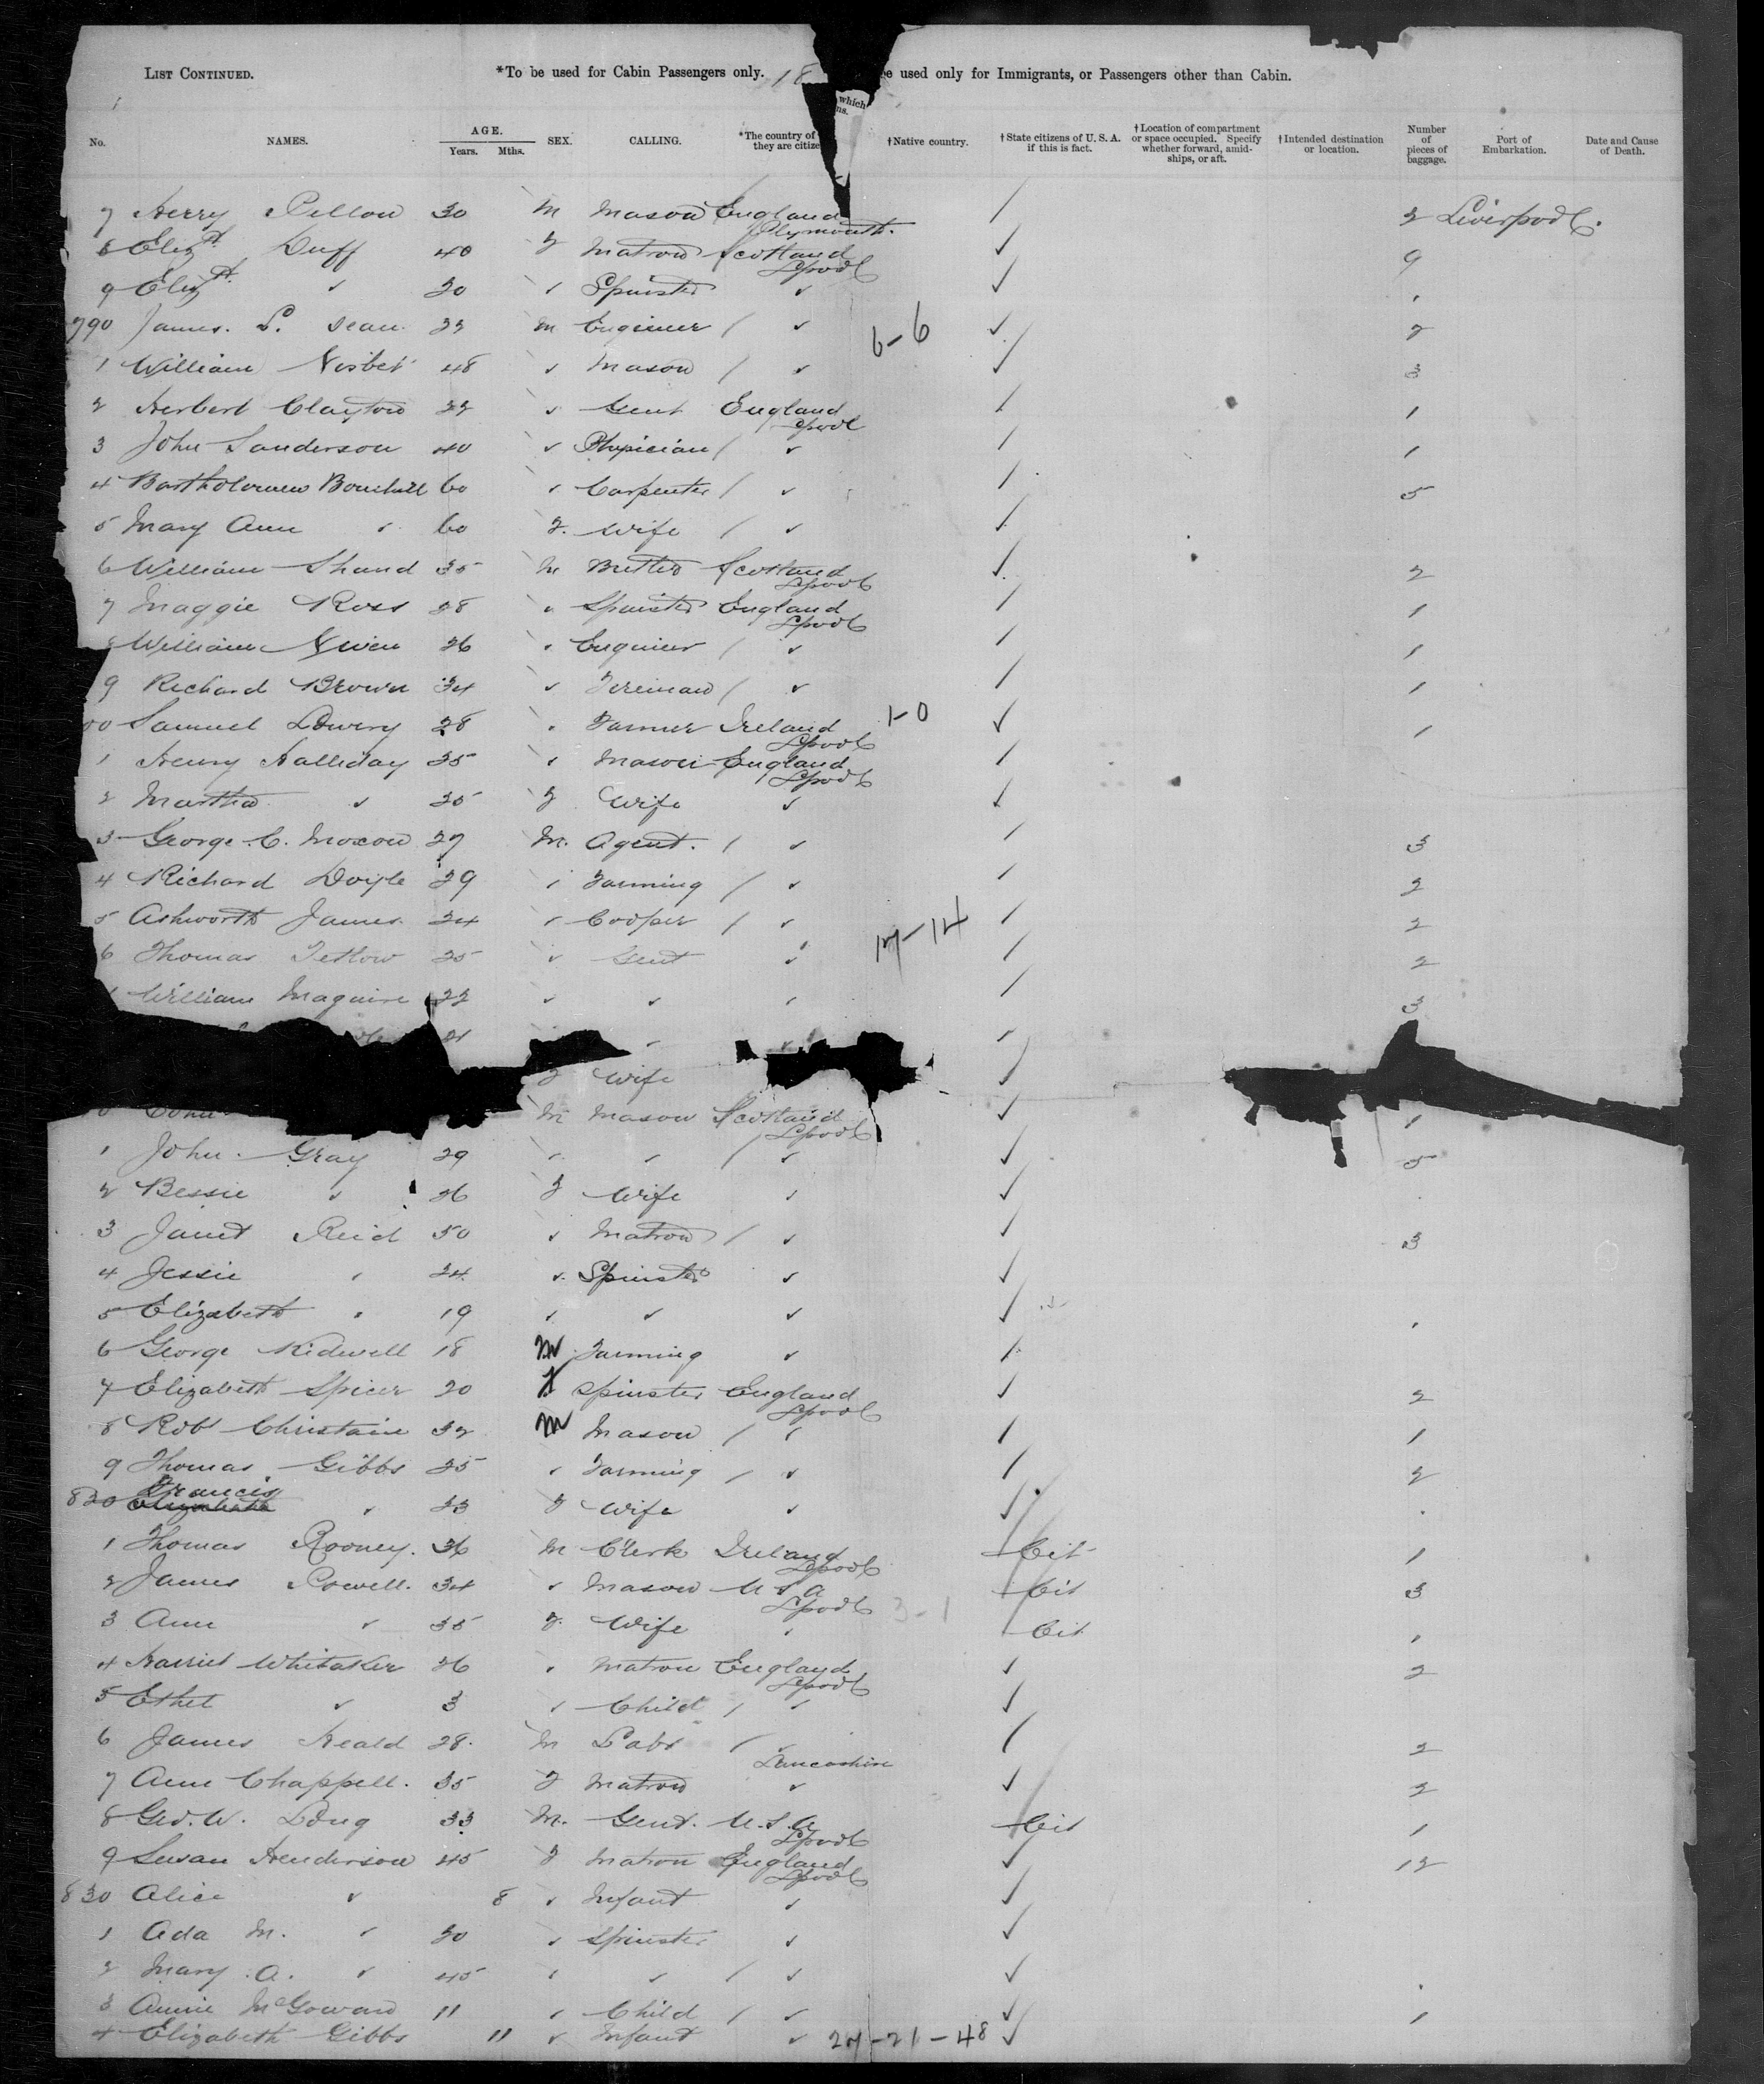 LIST CONTINUED. *To be used for Cabin Passengers only. 18 e used only for Immigrants, or Passengers other than Cabin.
which
ns.
No. NAMES. AGE. Years. Mths. SEX. CALLING. *The country of they are citize †Native country. †State citizens of U.S.A. if this is fact. †Location of compartment or space occupied. Specify whether forward, amidships, or aft. †Intended destination or location. Number of pieces of baggage. Port of Embarkation. Date and Cause of Death.
7 Henry 30 M Mason England / 2 Liverpool.
Plymouth.
8 Elizth Duff 40 F Matron Scotland ✓ 9
Lpool
9 Elizth ✓ 20 ✓ Spinster ✓ ✓
790 James. L. Dean. 22 M Engineer / ✓ 6-6 ✓ 2
1 William Nisbet 48 ✓ Mason / ✓ ✓ 3
2 Herbert Clayton 22 ✓ Gent England / 1
Lpool
3 John Sanderson 40 ✓ Physician / ✓ / 1
4 Bartholomew 60 ✓ Carpenter / ✓ / 5
5 Mary Ann ✓ 60 F. Wife / ✓ /
6 William Shand 35 M Scotland ✓ 2
Lpool
7 Maggie Ross 28 ✓ Spinster England / 1
Lpool
William Niven 26 ✓ Engineer / ✓ / 1
9 Richard Brown 34 ✓ Fireman / ✓ / 1
00 Samuel Lowery 28 ✓ Farmer Ireland 1-0 ✓ 1
Lpool
1 Henry Halliday 25 ✓ Mason England /
Lpool
2 Martha ✓ 25 F Wife ✓ ✓
3 George. C. Moxon 27 M. Agent. / ✓ / 3
4 Richard Doyle 29 ✓ Farming / ✓ / 2
5 Ashworth James 24 ✓ Cooper / ✓ 17-14 / 2
6 Thomas Tetlow 25 ✓ Gent ✓ / 2
William Maguire 22 ✓ ✓ ✓ / 3
✓ ✓ /
F Wife /
M Mason Scotland ✓ 1
Lpool
1 John. Gray 29 ✓ ✓ / ✓ ✓ 5
2 Bessie ✓ 26 F Wife ✓ ✓
3 Janet Reid 50 ✓ Matron / ✓ ✓ 3
4 Jessie ✓ 24 ✓ Spinster ✓ ✓
5 Elizabeth ✓ 19 ✓ ✓ ✓ ✓
6 George Kidwell 18 M Farming ✓ /
7 Elizabeth Spicer 20 F Spinster England ✓ 2
Lpool
8 Robt Christain 32 M Mason / ✓ / 1
9 Thomas Gibbs 25 ✓ Farming / ✓ / 2
Francis
820 Elizabeth ✓ 23 F Wife ✓ ✓
1 Thomas Rooney. 36 M Clerk Ireland Cit 1
Lpool
2 James Powell. 34 ✓ Mason U S A Cit 3
Lpool 3-1
3 Ann ✓ 35 F. Wife ✓ Cit
4 Harriet Whitaker 26 ✓ Matron England ✓ 2
Lpool
5 Ethel ✓ 3 ✓ Child / ✓ ✓
6 James Heald 28. M Labr / ✓ / 2
Lancashire
7 Ann Chappell. 35 F Matron ✓ ✓ 2
8 Geo. W. Long 33 M. Gent. U.S.A Cit 1
Lpool
9 Susan Henderson 45 F Matron England ✓ 12
Lpool
830 Alice ✓ 8 ✓ Infant ✓ ✓
1 Ada M. ✓ 20 ✓ Spinster ✓ ✓
2 Mary. A. ✓ 45 ✓ ✓ / ✓ ✓
3 Annie McGowan 11 ✓ Child / ✓ ✓ 1
4 Elizabeth Gibbs 11 ✓ Infant ✓ 27-21-48 ✓